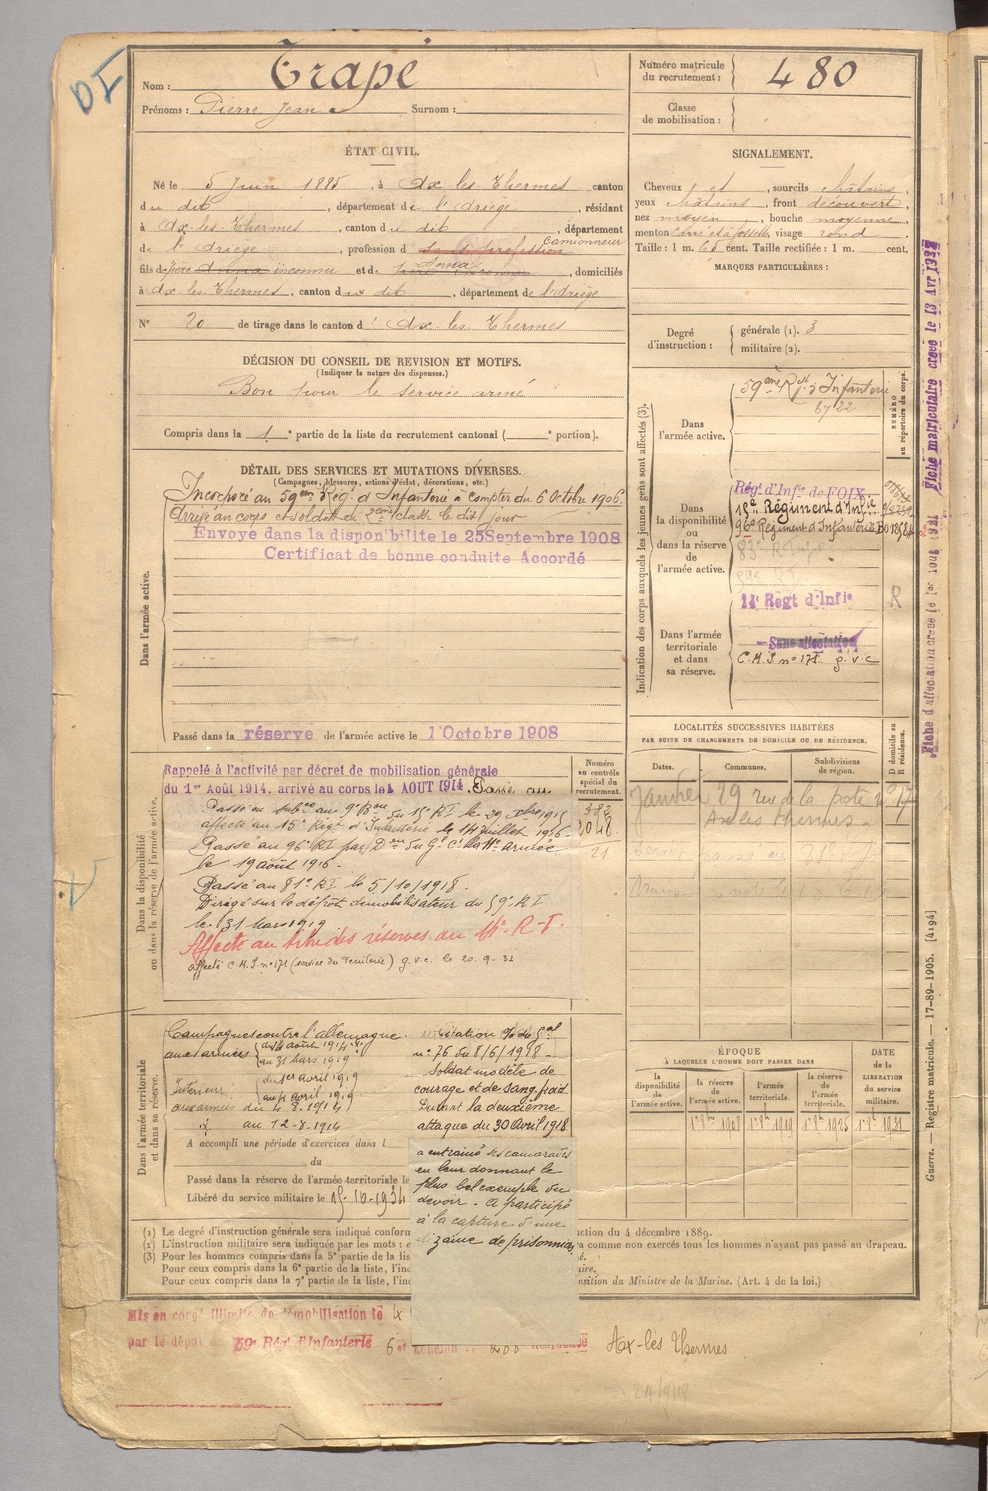 DI
Nom : Trapé
Prénoms : Pierre Jean Surnom :
Numéro matricule du recrutement : 480
Classe de mobilisation :
ÉTAT CIVIL.
Né le 5 Juin 1885, à Ax-les-Thermes canton
du dit, département de l'Ariège, résidant
à Ax-les-Thermes, canton du dit, département
de l'Ariège, profession de sans profession camionneur
fils de père inconnu et de Anna, domiciliés
à Ax-les-Thermes, canton du dit, département de l'Ariège
N° 20 de tirage dans le canton d'Ax-les-Thermes
SIGNALEMENT.
Cheveux et, sourcils châtains,
yeux châtains, front découvert
nez moyen, bouche moyenne,
menton carré et à fossette visage rond
Taille : 1 m. 60 cent. Taille rectifiée : 1 m. cent.
MARQUES PARTICULIÈRES :
Degré d'instruction : générale (1). 3
militaire (2).
DÉCISION DU CONSEIL DE REVISION ET MOTIFS.
(Indiquer la nature des dispenses.)
Bon pour le service armé
Compris dans la 1e partie de la liste du recrutement cantonal ( e portion).
DÉTAIL DES SERVICES ET MUTATIONS DIVERSES.
(Campagnes, blessures, actions d'éclat, décorations, etc.)
Dans l'armée active.
Incorporé au 59ème Rég. d'Infanterie à compter du 6 Octobre 1906.
Arrivé au corps et soldat de 2ème classe le dit jour
Envoye dans la disponibilite le 25 Septembre 1908
Certificat de bonne conduite Accordé
Passé dans la réserve de l'armée active le 1 Octobre 1908
Indication des corps auxquels les jeunes gens sont affectés (3).
NUMÉRO au répertoire du corps.
Dans l'armée active.
59ème Rgt d'Infanterie
6722
Dans la disponibilité ou dans la réserve de l'armée active.
Régt d'Infie de FOIX.
15e Régiment d'Infie
96e Régiment d'Infanterie
83e R. Infie
Dans l'armée territoriale et dans sa réserve.
14e Régt d'Infie
Sans affectation
C.M.I. n° 171 g.v.c
R
Fiche matriculaire créée le 13 Avr 1927
Fiche d'affectation créée le 1er Aout 1921
Dans la disponibilité ou dans la réserve de l'armée active.
Rappelé à l'activité par décret de mobilisation générale
du 1er Août 1914, arrivé au corps le 4 AOUT 1914. Passé au
Passé au 9e Bon du 15e RI le 29 Xbre 1915
affecté au 15e Régt d'Infanterie le 14 juillet 1916.
Passé au 96e RI par Don du Gl Ct la IIe armée
le 19 août 1916.
Passé au 81e RI le 5/10/1918.
Dirigé sur le dépôt démobilisateur du 59e RI
le 31 Mars 1919
Affecté au titre des réserves au 14e R-I.
affecté C.M.I. n° 171 (service du Territoire) g.v.c. le 20-9-31
Numéro au contrôle spécial du recrutement.
382
21
LOCALITÉS SUCCESSIVES HABITÉES
PAR SUITE DE CHANGEMENTS DE DOMICILE OU DE RÉSIDENCE.
Dates. Communes. Subdivisions de région.
D domicile ou R résidence.
Janvier 29 rue de la poste n° 17
Ax les Thermes
Dans l'armée territoriale et dans sa réserve.
Campagnes contre l'allemagne.
aux armées du 4 août 1914
au 31 Mars 1919
Intérieur du 1er avril 1919
au 4 avril 1919
aux armées du 4-8-1914
au 12-8-1914
A accompli une période d'exercices dans l
du
Passé dans la réserve de l'armée territoriale le
Libéré du service militaire le 15-10-1934
Citation
n° 76 du 8/6/1918 -
Soldat modèle de
courage et de sang froid
Durant la deuxième
attaque du 30 avril 1918
a entraîné ses camarades
en leur donnant le
plus bel exemple du
devoir - a participé
à la capture d'une
dizaine de prisonniers
ÉPOQUE
À LAQUELLE L'HOMME DOIT PASSER DANS
la disponibilité de l'armée active. la réserve de l'armée active. l'armée territoriale. la réserve de l'armée territoriale.
DATE de la LIBÉRATION du service militaire.
1er 8bre 1908 1er 8bre 1919 1er 8bre 1925 1er 8bre 1931
Guerre. — Registre matricule. — 17-89-1905. [4194]
(1) Le degré d'instruction générale sera indiqué conform ction du 4 décembre 1889.
(2) L'instruction militaire sera indiquée par les mots : e a comme non exercés tous les hommes n'ayant pas passé au drapeau.
(3) Pour les hommes compris dans la 5e partie de la lis
Pour ceux compris dans la 6e partie de la liste, l'inc
Pour ceux compris dans la 7e partie de la liste, l'inc osition du Ministre de la Marine. (Art. 4 de la loi.)
Mis en congé illimité de démobilisation le
par le dépôt du 59e Rég. d'Infanterie 6e échelon n° 200 Résidence Ax-les-Thermes